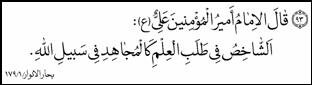 ﴿۹۳﴾ قَالَ الْإِمَامُ أَمِيرُ الْمُؤْمِنِينَ عَلِيٌّ (ع):
اَلشَّاخِصُ فِي طَلَبِ الْعِلْمِ كَالْمُجَاهِدِ فِي سَبِيلِ اللهِ.
بحار الانوار ۱۷۹/۱